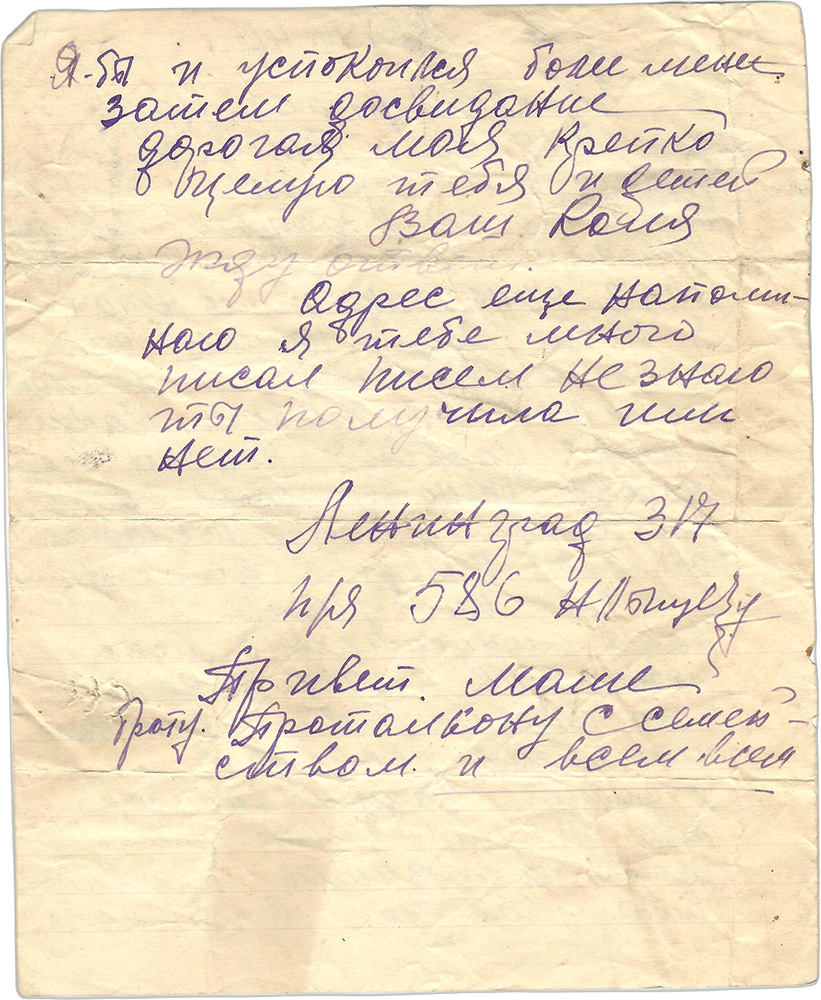 Я-бы и успокоился боли мени
затем досвидание
дорогая моя крепко
целую тебя и детей
Ваш Коля
жду ответ.
Адрес еще напоми-
наю я тебе много
писал писем не знаю
ты получила или
нет.
Ленинград 317
ППЯ 586
Привет. Маше
Протамкону с семей-
ством. и всем всем